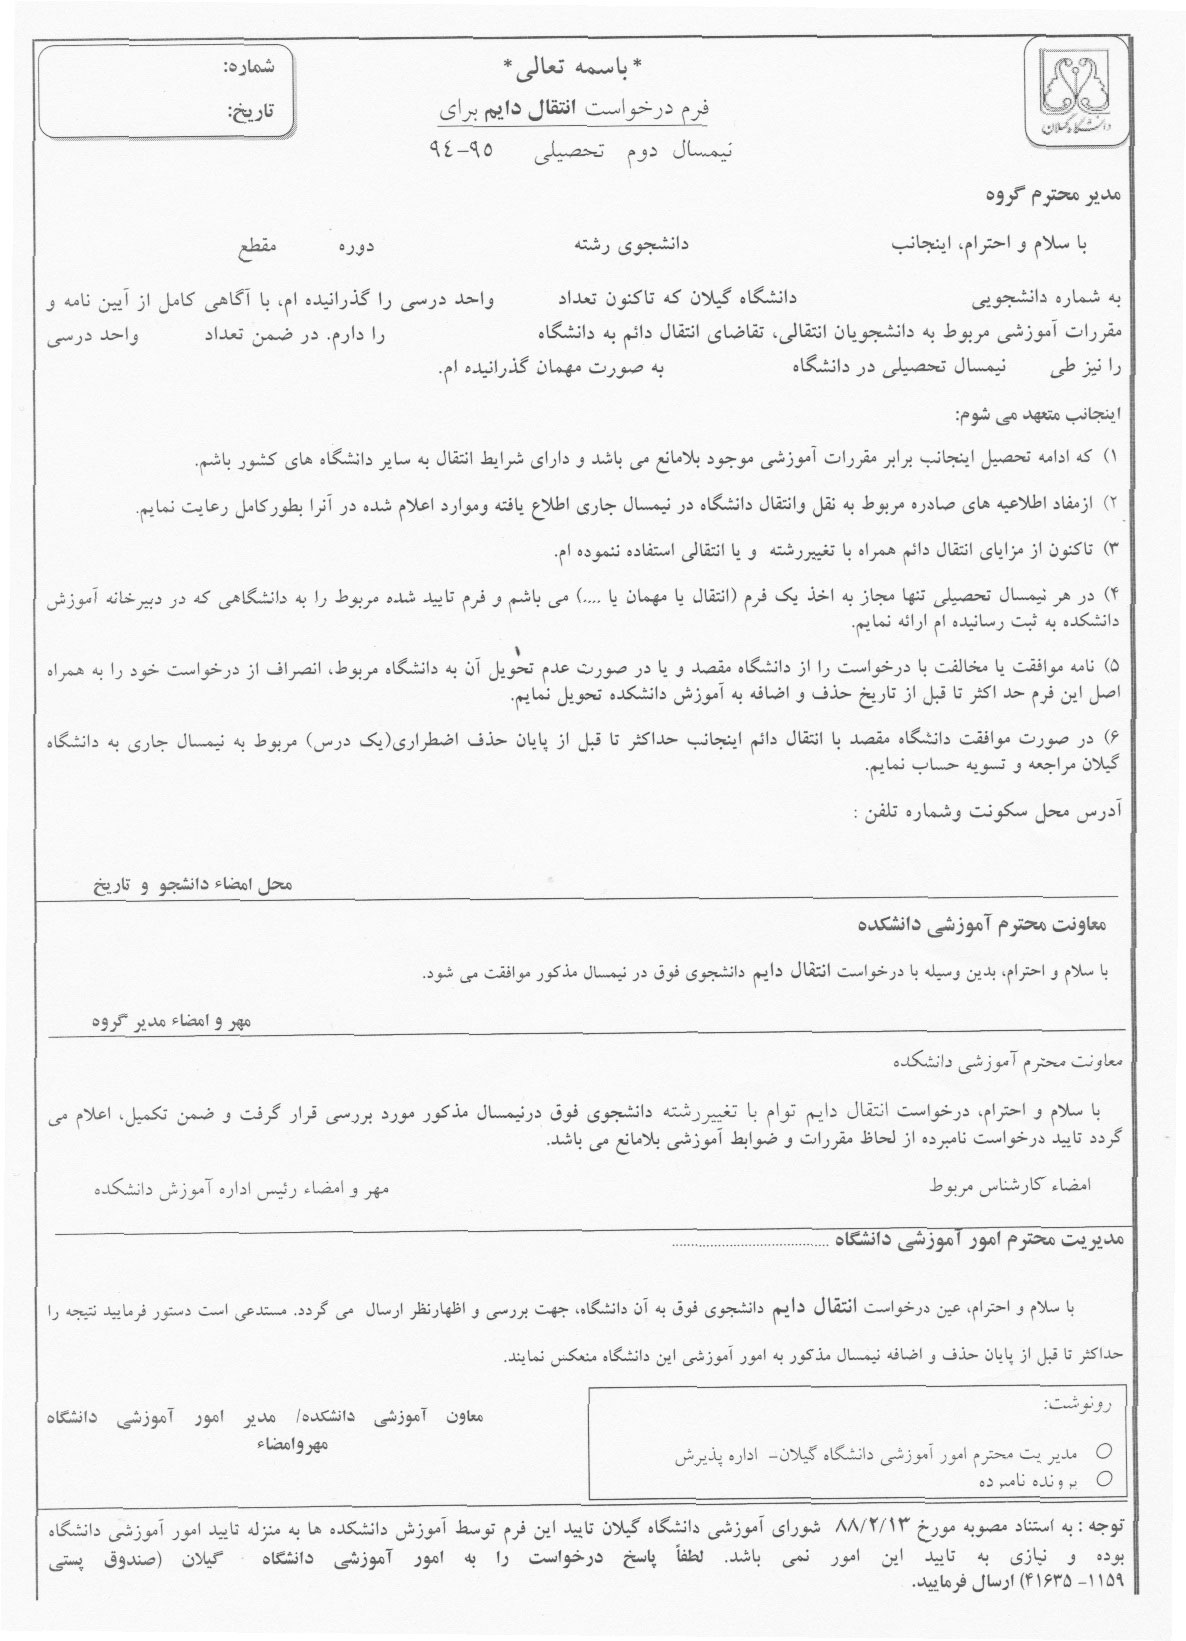 * باسمه تعالی*
فرم درخواست انتقال دایم برای
نیمسال دوم تحصیلی ۹۵-۹٤
شماره:
تاریخ:
دانشگاه گیلان
مدیر محترم گروه
با سلام و احترام، اینجانب دانشجوی رشته دوره مقطع
به شماره دانشجویی دانشگاه گیلان که تاکنون تعداد واحد درسی را گذرانیده ام، با آگاهی کامل از آیین نامه و
مقررات آموزشی مربوط به دانشجویان انتقالی، تقاضای انتقال دائم به دانشگاه را دارم. در ضمن تعداد واحد درسی
را نیز طی نیمسال تحصیلی در دانشگاه به صورت مهمان گذرانیده ام.
اینجانب متعهد می شوم:
۱) که ادامه تحصیل اینجانب برابر مقررات آموزشی موجود بلامانع می باشد و دارای شرایط انتقال به سایر دانشگاه های کشور باشم.
۲) ازمفاد اطلاعیه های صادره مربوط به نقل وانتقال دانشگاه در نیمسال جاری اطلاع یافته وموارد اعلام شده در آنرا بطورکامل رعایت نمایم.
۳) تاکنون از مزایای انتقال دائم همراه با تغییررشته و یا انتقالی استفاده ننموده ام.
۴) در هر نیمسال تحصیلی تنها مجاز به اخذ یک فرم (انتقال یا مهمان یا ....) می باشم و فرم تایید شده مربوط را به دانشگاهی که در دبیرخانه آموزش
دانشکده به ثبت رسانیده ام ارائه نمایم.
۵) نامه موافقت یا مخالفت با درخواست را از دانشگاه مقصد و یا در صورت عدم تحویل آن به دانشگاه مربوط، انصراف از درخواست خود را به همراه
اصل این فرم حد اکثر تا قبل از تاریخ حذف و اضافه به آموزش دانشکده تحویل نمایم.
۶) در صورت موافقت دانشگاه مقصد با انتقال دائم اینجانب حداکثر تا قبل از پایان حذف اضطراری(یک درس) مربوط به نیمسال جاری به دانشگاه
گیلان مراجعه و تسویه حساب نمایم.
آدرس محل سکونت وشماره تلفن :
محل امضاء دانشجو و تاریخ
معاونت محترم آموزشی دانشکده
با سلام و احترام، بدین وسیله با درخواست انتقال دایم دانشجوی فوق در نیمسال مذکور موافقت می شود.
مهر و امضاء مدیر گروه
معاونت محترم آموزشی دانشکده
با سلام و احترام، درخواست انتقال دایم توام با تغییررشته دانشجوی فوق درنیمسال مذکور مورد بررسی قرار گرفت و ضمن تکمیل، اعلام می
گردد تایید درخواست نامبرده از لحاظ مقررات و ضوابط آموزشی بلامانع می باشد.
امضاء کارشناس مربوط مهر و امضاء رئیس اداره آموزش دانشکده
مدیریت محترم امور آموزشی دانشگاه ....................................
با سلام و احترام، عین درخواست انتقال دایم دانشجوی فوق به آن دانشگاه، جهت بررسی و اظهارنظر ارسال می گردد. مستدعی است دستور فرمایید نتیجه را
حداکثر تا قبل از پایان حذف و اضافه نیمسال مذکور به امور آموزشی این دانشگاه منعکس نمایند.
رونوشت:
مدیر یت محترم امور آموزشی دانشگاه گیلان- اداره پذیرش
پرونده نامبرده
معاون آموزشی دانشکده/ مدیر امور آموزشی دانشگاه
مهروامضاء
توجه : به استناد مصوبه مورخ ۸۸/۲/۱۳ شورای آموزشی دانشگاه گیلان تایید این فرم توسط آموزش دانشکده ها به منزله تایید امور آموزشی دانشگاه
بوده و نیازی به تایید این امور نمی باشد. لطفاً پاسخ درخواست را به امور آموزشی دانشگاه گیلان (صندوق پستی
۱۱۵۹- ۴۱۶۳۵) ارسال فرمایید.